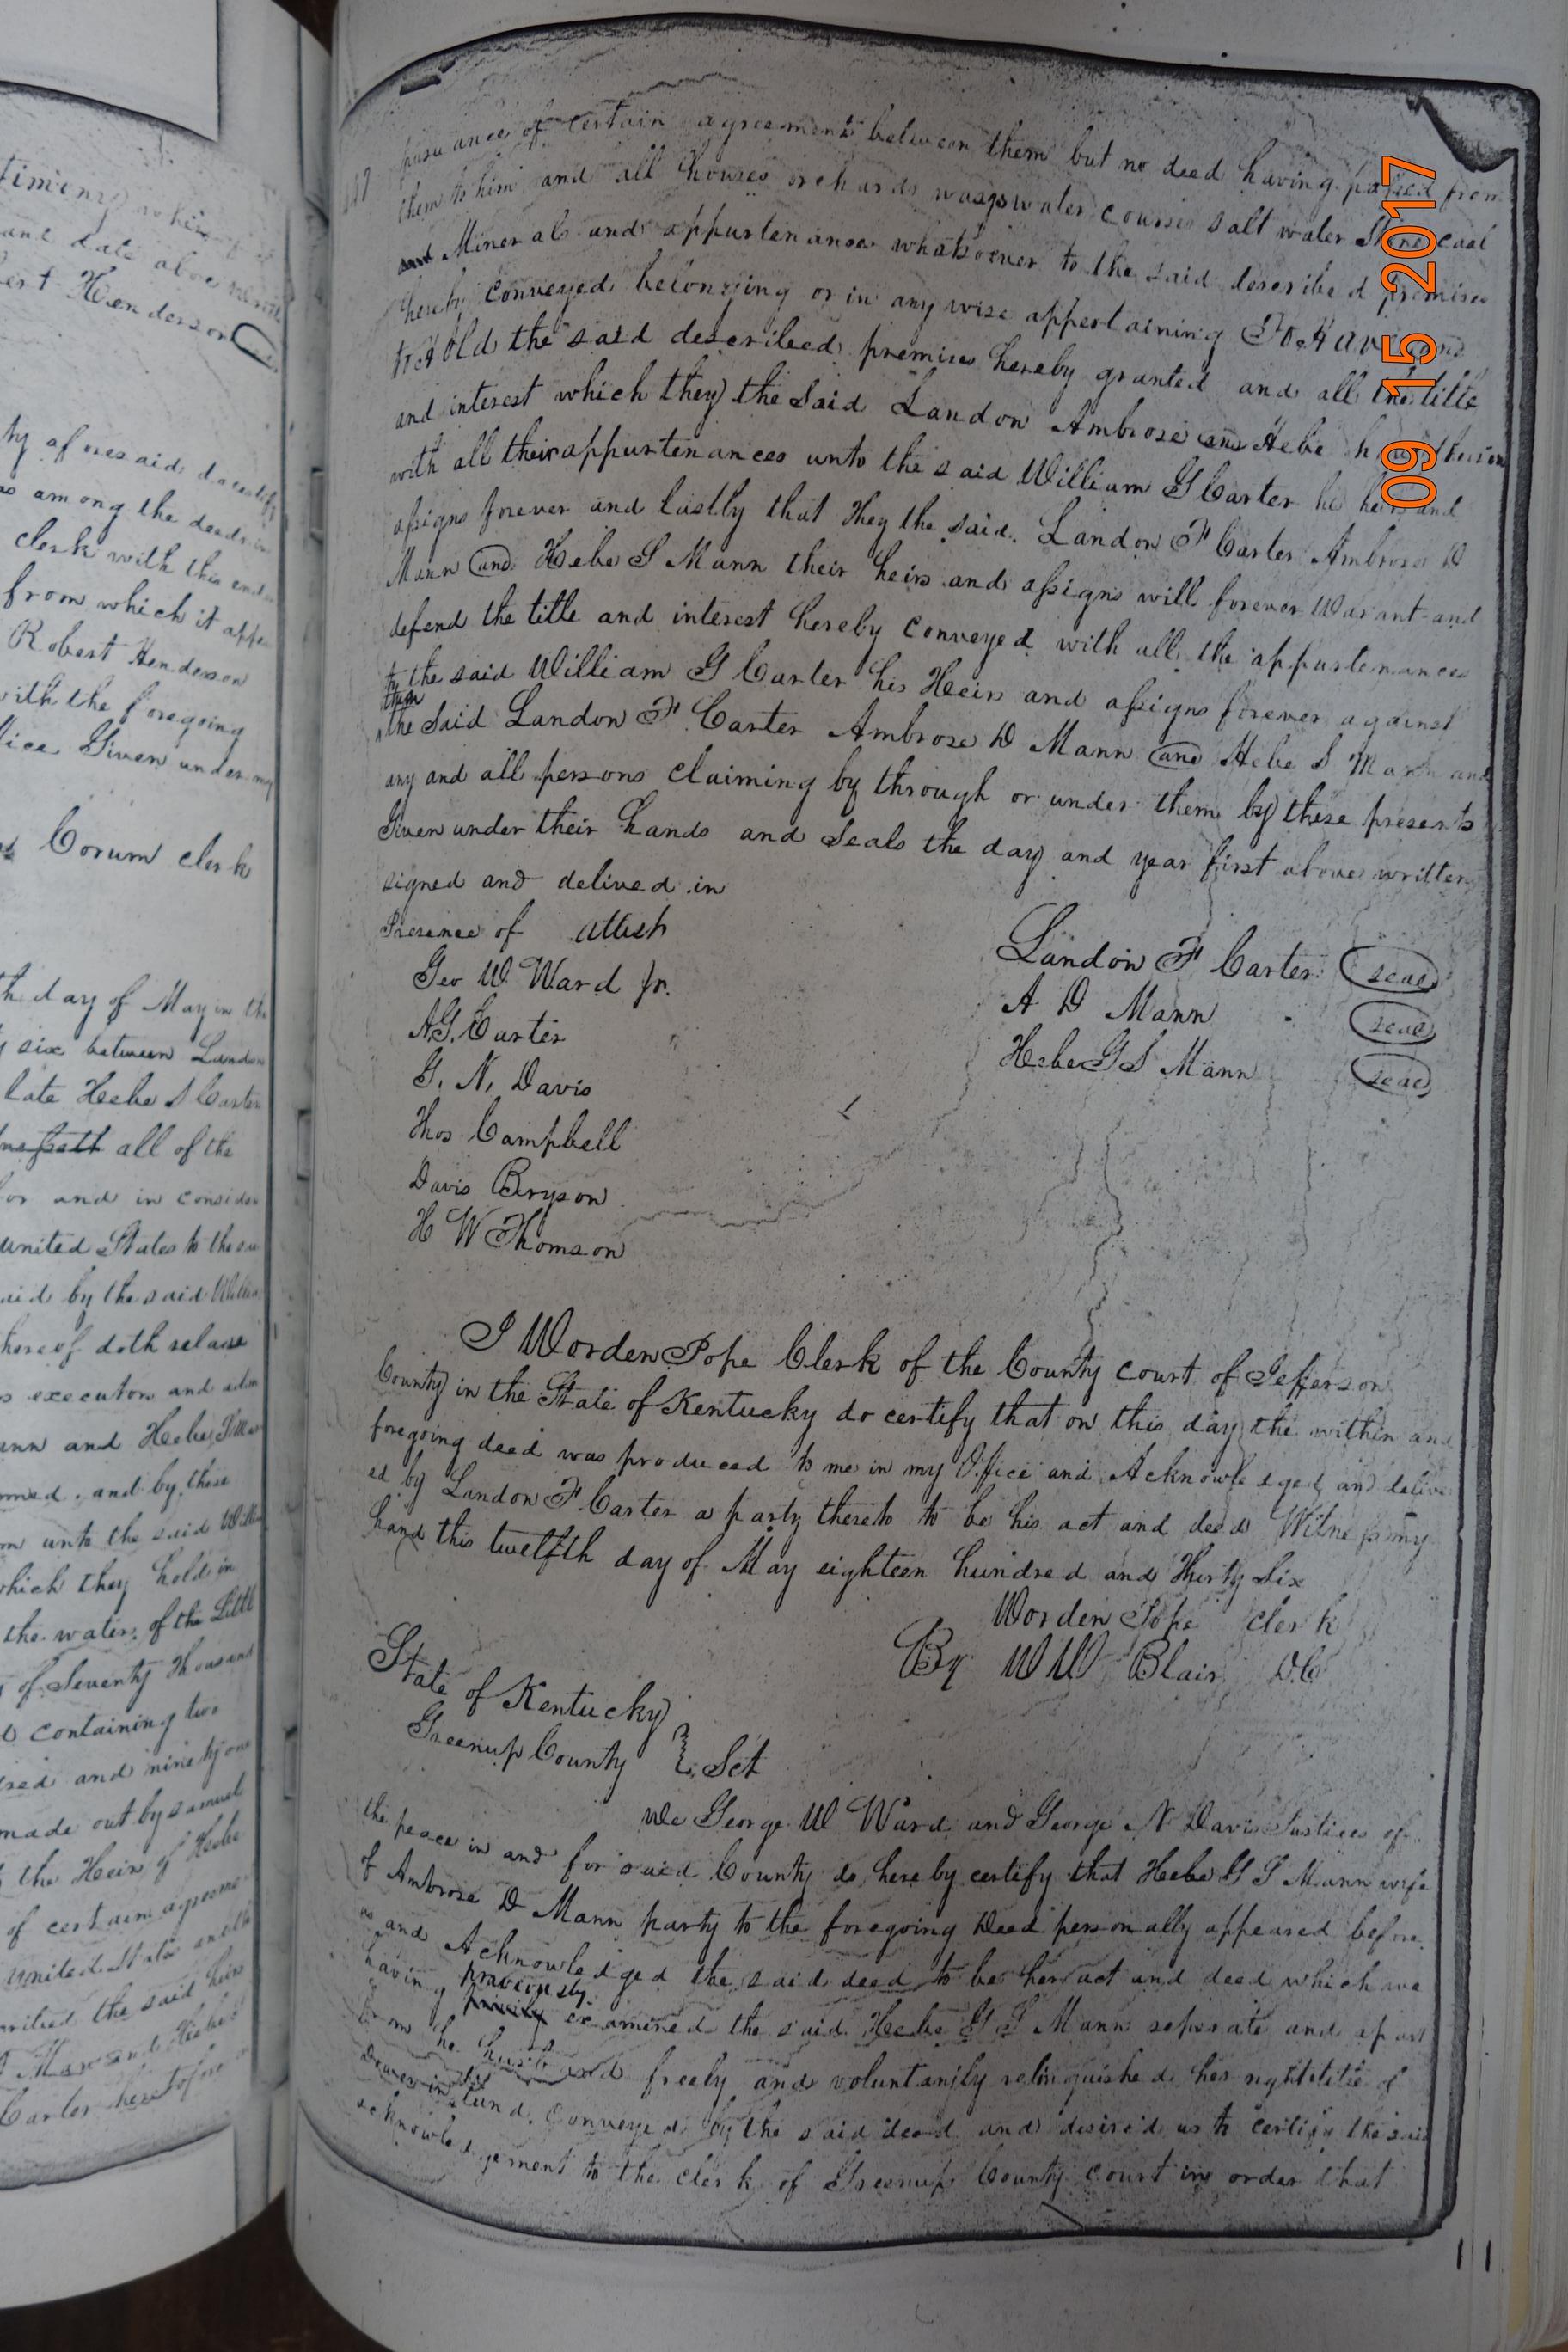 timony whereof
and date above
ert Henderson
ty aforesaid do certify
as among the deeds in
clerk with this
from which it
Robert Henderson
with the foregoing
ice Given under my
Corum clerk
th day of May in the
six between Landon
late Hebe S Carter
all of the
for and in consider
united States to the
aid by the said
hereof doth release
s executors and
ann and Hebe
and by these
unto the said
which they hold in
the water of the Little
of Seventy Thousand
containing two
red and ninety one
made out by Samuel
the Heirs of Hebe
of certain agreeme
United States
the said heirs
Carter heretofore
117
pursuance of certain agreements between them but no deed having passed from
them to him and all houses orchards ways water courses salt water Stone coal
and Minerals and appurtenances whatsoever to the said described premises
hereby conveyed belonging or in any wise appertaining To Have and
to Hold the said described premises hereby granted and all the title
and interest which they the Said Landon Ambrose and Hebe
with all their appurtenances unto the said William G Carter his heirs and
assigns forever and lastly that they the said Landon F Carter Ambrose D
Mann and Hebe S Mann their heirs and assigns will forever Warant and
defend the title and interest hereby conveyed with all the appurtenances
to the said William G Carter his Heirs and assigns forever against
them
the Said Landon F Carter Ambrose D Mann and Hebe S Mann and
any and all persons claiming by through or under them by these presents
Given under their hands and Seals the day and year first above written
signed and delived in
Presence of attest
Geo W Ward Jr.
A.G. Carter
G. N. Davis
Thos Campbell
Davis Bryson
H W Thomson
Landon F Carter seal
A D Mann seal
Hebe G S Mann seal
I Worden Pope Clerk of the County court of Jefferson
County in the State of Kentucky do certify that on this day the within and
foregoing deed was produced to me in my Office and Acknowledged and deliver
ed by Landon F Carter a party thereto to be his act and deed Witness my
hand this twelfth day of May eighteen hundred and Thirty Six
Worden Pope Clerk
By W W Blair D.C
State of Kentucky
Greenup County } Sct
We George W Ward and George N Davis Justices of
the peace in and for said County do hereby certify that Hebe G S Mann wife
of Ambrose D Mann party to the foregoing Deed personally appeared before
us and Acknowledged the said deed to be her act and deed which we
having previously privily examined the said Hebe G S Mann seperate and apart
from he husband freely and voluntarily relinquished her right title of
Dower in land Conveyed by the said deed and desired us to certify the said
acknowledgement to the clerk of Greenup County court in order that
111
09 15 2017